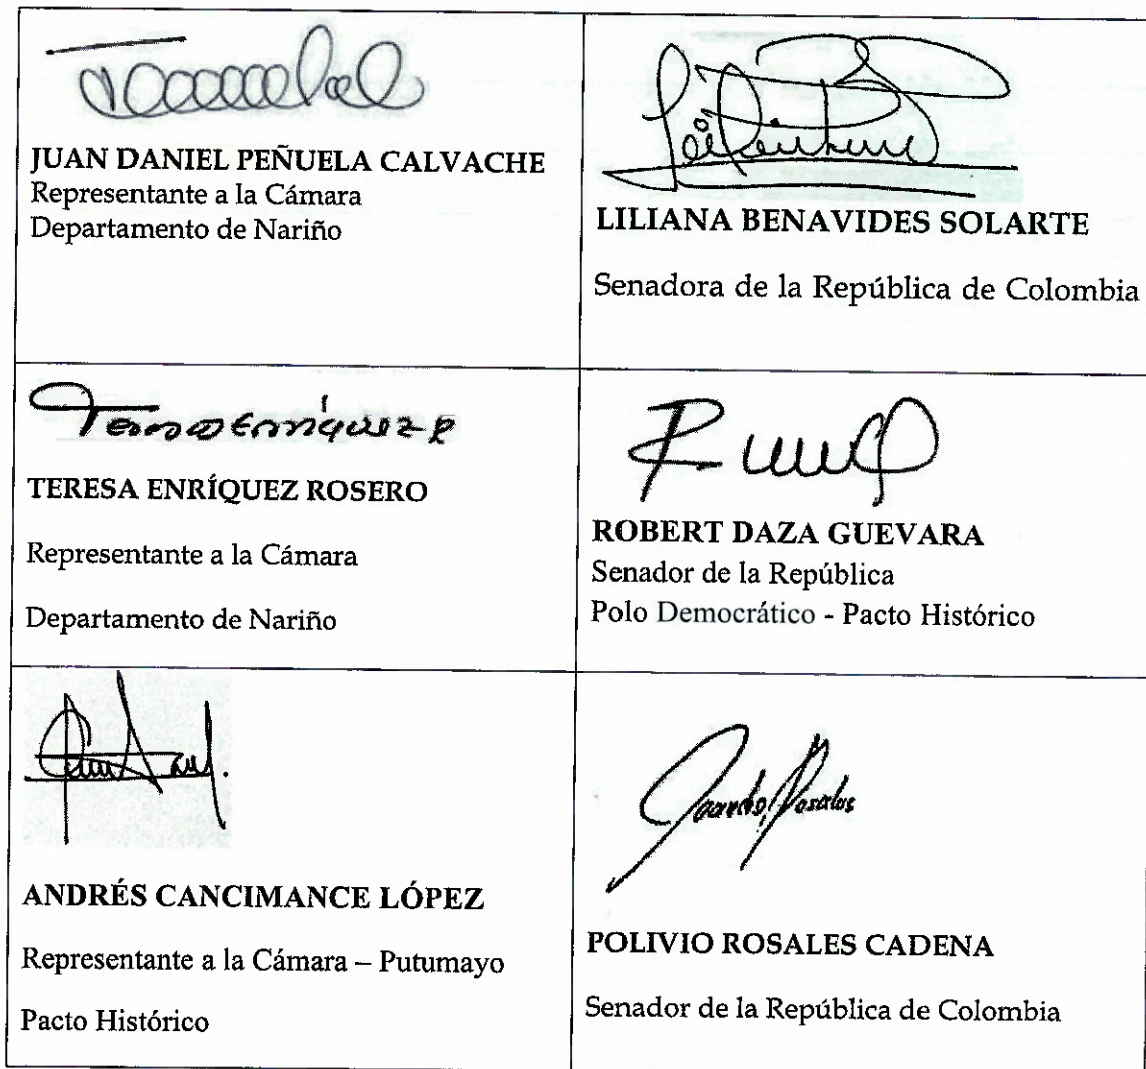 JUAN DANIEL PEÑUELA CALVACHE
Representante a la Cámara
Departamento de Nariño
LILIANA BENAVIDES SOLARTE
Senadora de la República de Colombia
Teresa Enríquez R
TERESA ENRÍQUEZ ROSERO
Representante a la Cámara
Departamento de Nariño
ROBERT DAZA GUEVARA
Senador de la República
Polo Democrático - Pacto Histórico
ANDRÉS CANCIMANCE LÓPEZ
Representante a la Cámara – Putumayo
Pacto Histórico
Rosales
POLIVIO ROSALES CADENA
Senador de la República de Colombia